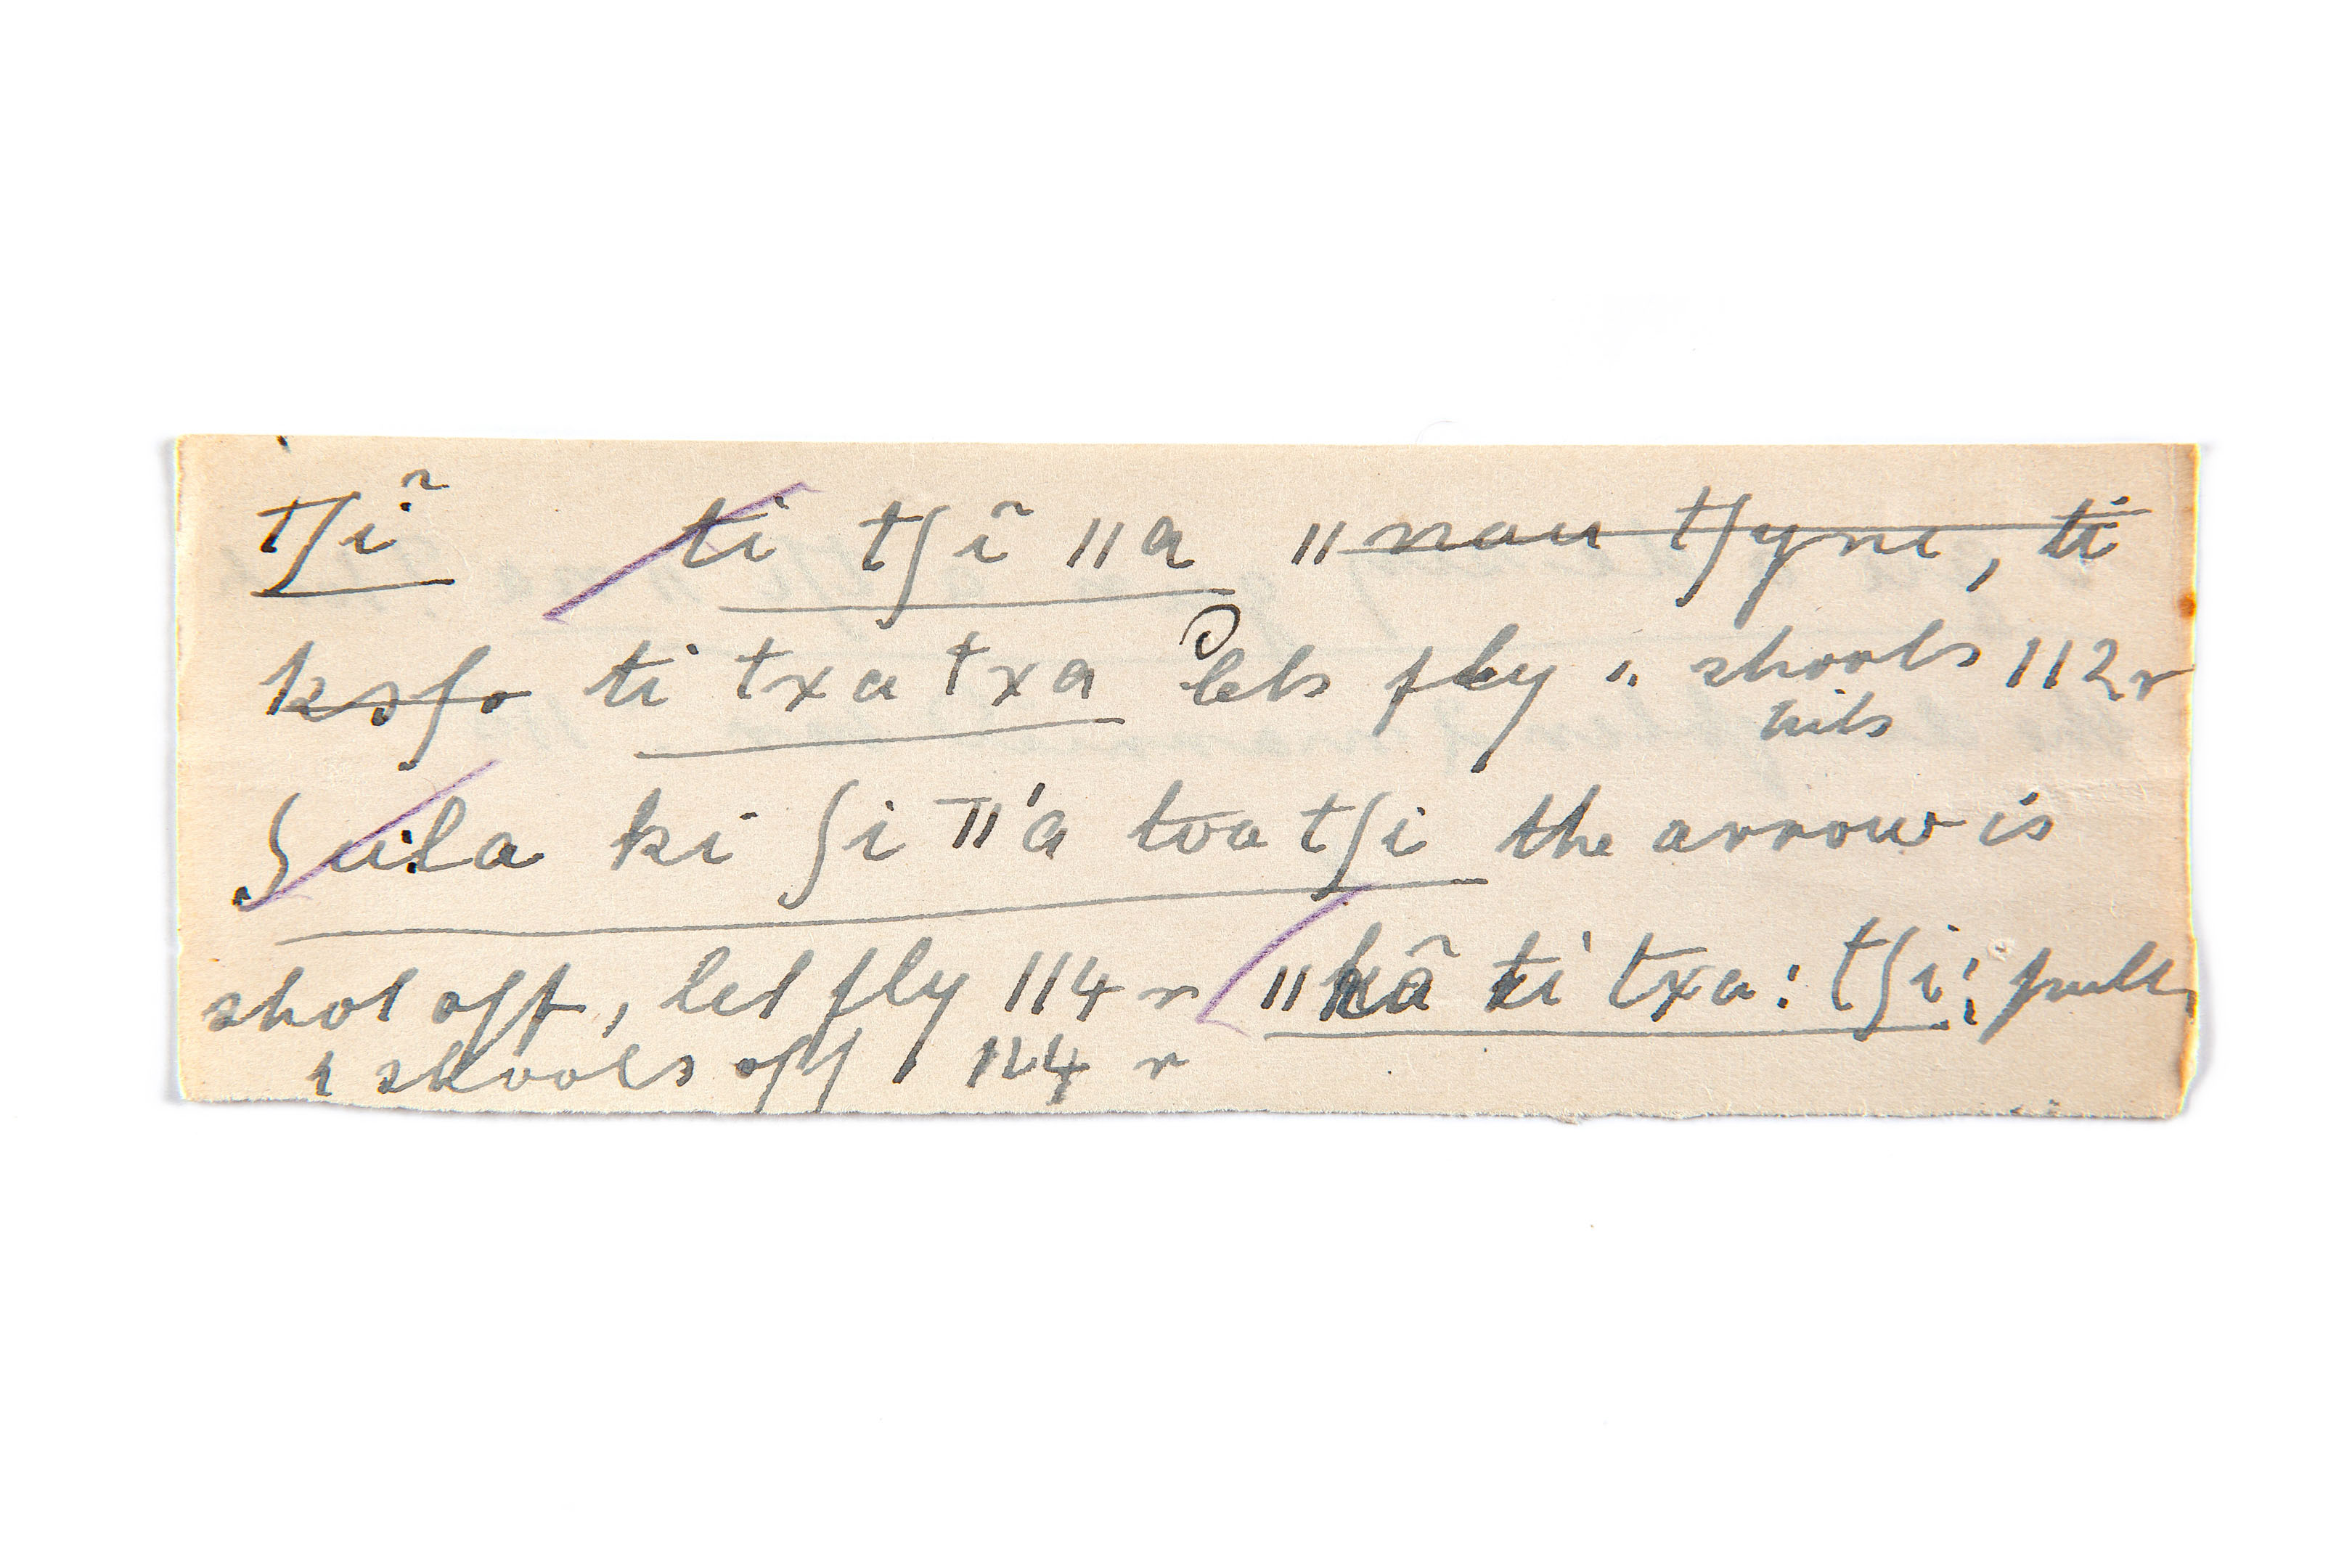 tʃĩ ti tʃĩ ǁa ǁnau tʃyni, ti
ksʃo ti txa txa lets fly, shoots 112 r
hits
ʃuila ki ʃi ǁ'a toa tʃi the arrow is
shot off, let fly 114 r ǁkã ti txa: tʃi; pulls
& shoots off, 124 r